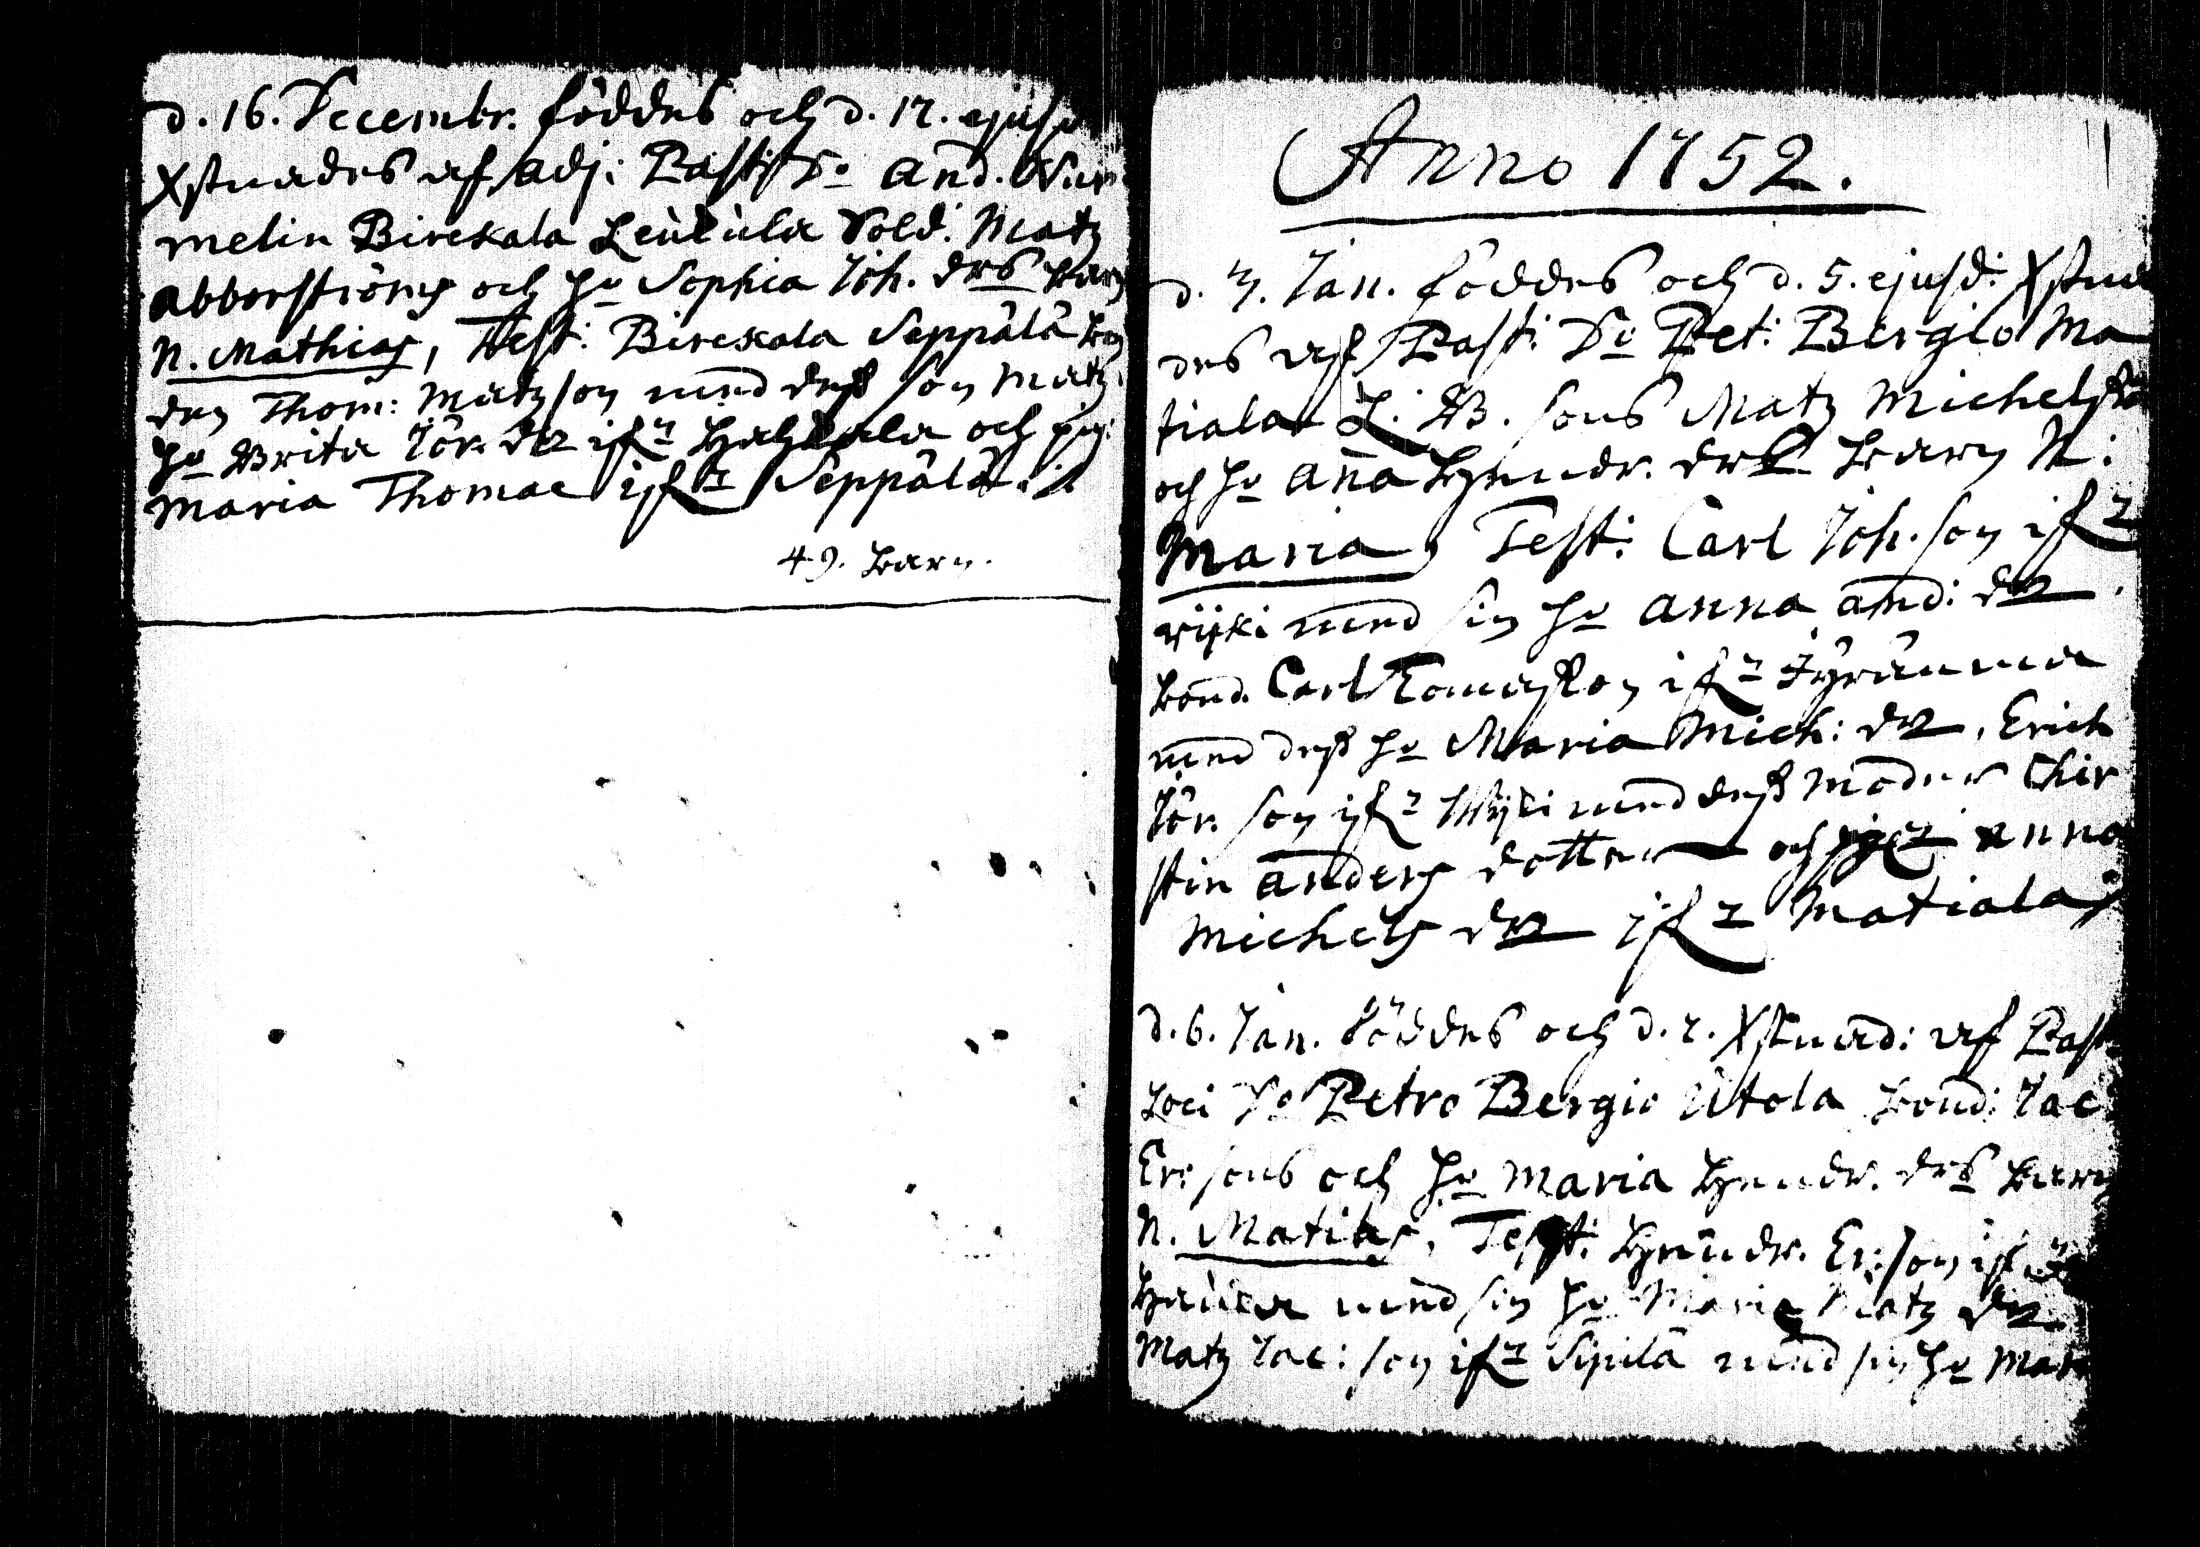 d. 16. Decembr. föddes och d. 17. ejusd
Xstnades af Adj: Past: Dº And. Wur
melin Birckala Leukula Sold: Matz
Abborströms och hu Sophia Joh. drs barn
N. Mathias, Test: Birckala Seppälä bon
den Thom: Matzson med dess son Matz
hu Brita Jör. dr ifr och pig:
Maria Thomae ifr Seppälä.
49. barn.
Anno 1752.
d. 3. Jan. föddes och d. 5. ejusd: Xstna
des af Past: Dº Pet: Bergio Ma
tiala L: B. sons Matz Michelss
och hu Anna Hendr. drs barn N:
Maria, Test: Carl Joh. son ifr
wijki med sin hu Anna And: dr.
bond. Carl Tomasson ifr Työränma
med dess hu Maria Mich: dr, Erich
Jör. son ifr Wijki med dess moder Chir
stin Anders dotter och pig Anna
Michels dr ifr Matiala
d. 6. Jan. föddes och d. 7. Xstnad: af Past
Loci Dº Petro Bergio Utola bond: Jac
Er: sons och hu Maria Hendr. drs barn
N. Matias, Test: Hendr. Er: son ifr
med sin hu Maria Matz dr.
Matz Jac: son ifr Sipilä med sin hu Mar